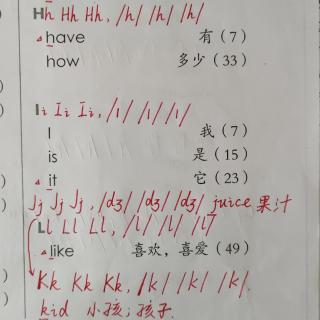 Hh Hh Hh, /h/ /h/ /h/
have 有（7）
how 多少（33）
Ii Ii Ii, /ɪ/ /ɪ/ /ɪ/
I 我（7）
is 是（15）
it 它（23）
Jj Jj Jj, /dʒ/ /dʒ/ /dʒ/ juice 果汁
Ll Ll Ll, /l/ /l/ /l/
like 喜欢，喜爱（49）
Kk Kk Kk, /k/ /k/ /k/.
kid 小孩；孩子.